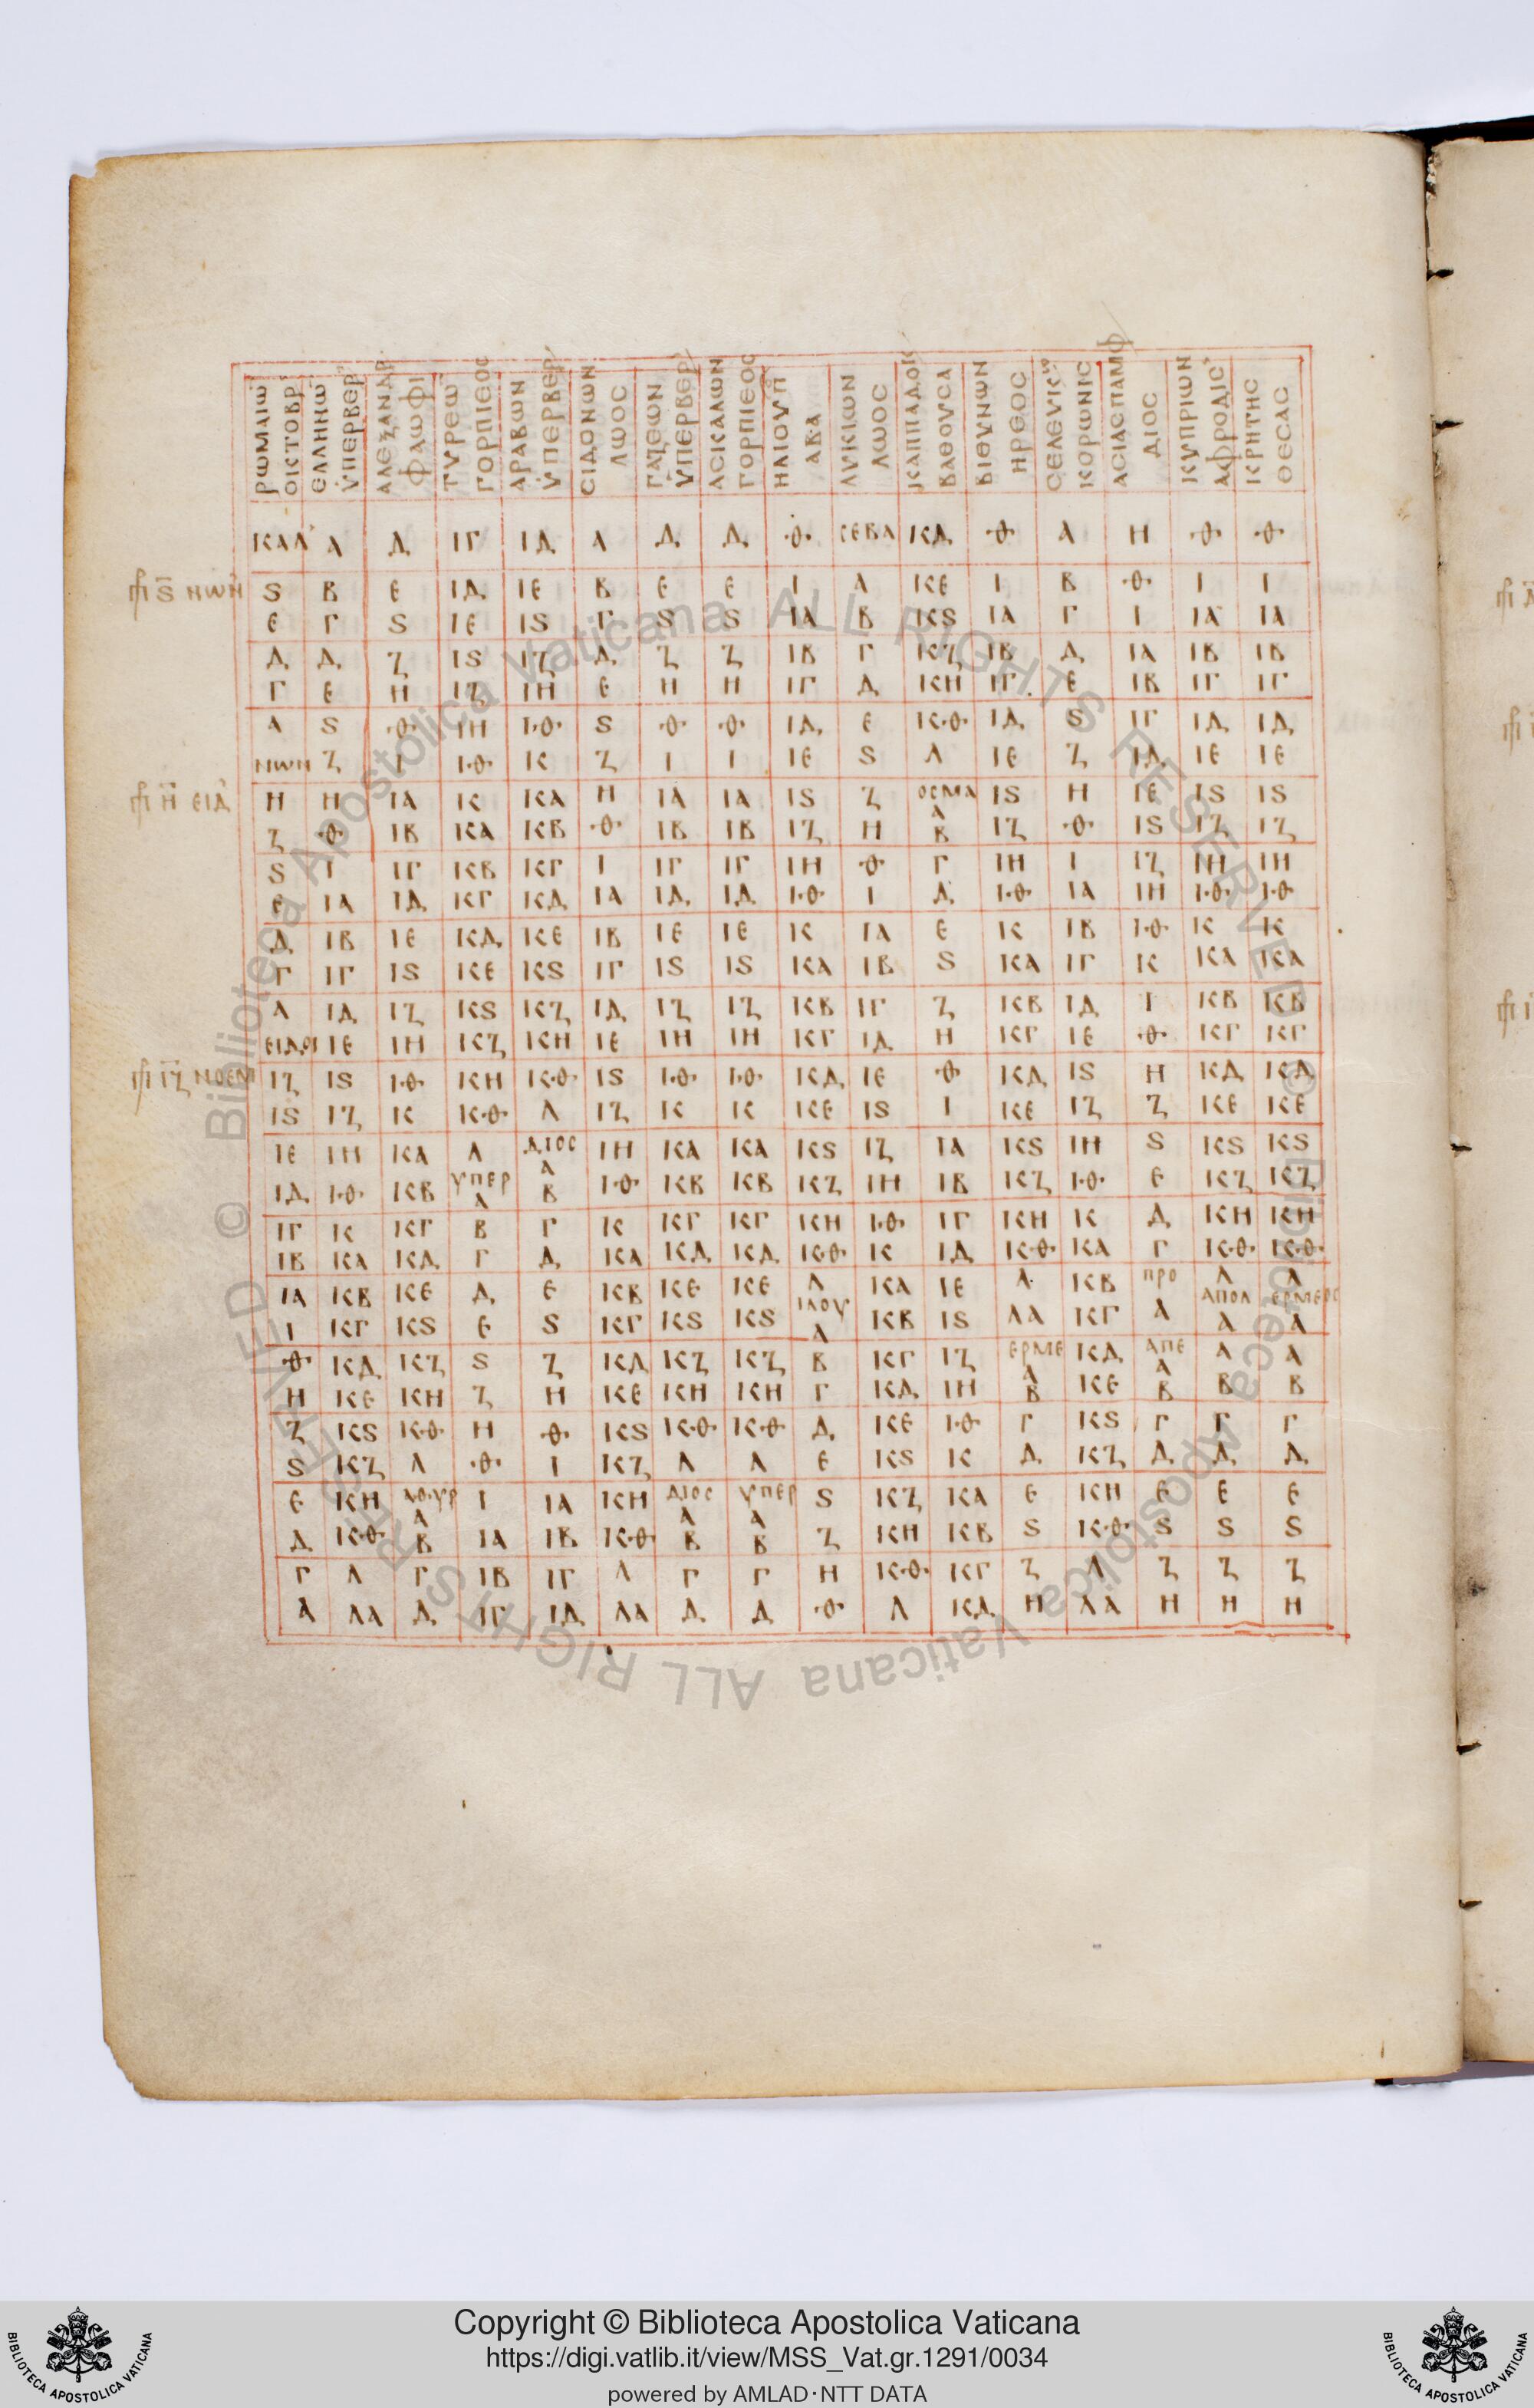 ΡΩΜΑΙΩ
ΟΚΤΟΒΡ
ΕΛΛΗΝΩ
ΥΠΕΡΒΕΡ
ΑΛΕΞΑΝΔΡ
ΦΑΩΦΙ
ΤΥΡΕΩ
ΓΟΡΠΙΕΟС
ΑΡΑΒΩΝ
ΥΠΕΡΒΕΡ
СΙΔΟΝΩΝ
ΛΩΟС
ΓΑΖΕΩΝ
ΥΠΕΡΒΕΡ
ΑСΚΑΛΩΝ
ΓΟΡΠΙΕΟС
ΗΛΙΟΥΠ
ΑΒΑ
ΛΥΚΙΩΝ
ΛΩΟС
ΚΑΠΠΑΔΟΚ
ΒΑΘΟΥСΑ
ΒΙΘΥΝΩΝ
ΗΡΕΟС
СΕΛΕΥΚΙ
ΚΟΡΩΝΙС
ΑСΙΑСΠΑΜΦ
ΔΙΟС
ΚΥΠΡΙΩΝ
ΑΦΡΟΔΙС
ΚΡΗΤΗС
ΘΕСΑС
ΚΑΛ Α Δ ΙΓ ΙΔ Α Δ Δ Θ СΕΒΑ ΚΔ Θ Α Η Θ Θ
Ϛ ΝΩΝ Ϛ Β Ε ΙΔ ΙΕ Β Ε Ε Ι Α ΚΕ Ι Β Θ Ι Ι
Ε Γ Ϛ ΙΕ ΙϚ Γ Ϛ Ϛ ΙΑ Β ΚϚ ΙΑ Γ Ι ΙΑ ΙΑ
Δ Δ Ζ ΙϚ ΙΖ Δ Ζ Ζ ΙΒ Γ ΚΖ ΙΒ Δ ΙΑ ΙΒ ΙΒ
Γ Ε Η ΙΖ ΙΗ Ε Η Η ΙΓ Δ ΚΗ ΙΓ Ε ΙΒ ΙΓ ΙΓ
Α Ϛ Θ ΙΗ ΙΘ Ϛ Θ Θ ΙΔ Ε ΚΘ ΙΔ Ϛ ΙΓ ΙΔ ΙΔ
ΝΩΝ Ζ Ι ΙΘ Κ Ζ Ι Ι ΙΕ Ϛ Λ ΙΕ Ζ ΙΔ ΙΕ ΙΕ
Η ΕΙΔ Η Η ΙΑ Κ ΚΑ Η ΙΑ ΙΑ ΙϚ Ζ ΟСΜΑ Α ΙϚ Η ΙΕ ΙϚ ΙϚ
Ζ Θ ΙΒ ΚΑ ΚΒ Θ ΙΒ ΙΒ ΙΖ Η Β ΙΖ Θ ΙϚ ΙΖ ΙΖ
Ϛ Ι ΙΓ ΚΒ ΚΓ Ι ΙΓ ΙΓ ΙΗ Θ Γ ΙΗ Ι ΙΖ ΙΗ ΙΗ
Ε ΙΑ ΙΔ ΚΓ ΚΔ ΙΑ ΙΔ ΙΔ ΙΘ Ι Δ ΙΘ ΙΑ ΙΗ ΙΘ ΙΘ
Δ ΙΒ ΙΕ ΚΔ ΚΕ ΙΒ ΙΕ ΙΕ Κ ΙΑ Ε Κ ΙΒ ΙΘ Κ Κ
Γ ΙΓ ΙϚ ΚΕ ΚϚ ΙΓ ΙϚ ΙϚ ΚΑ ΙΒ Ϛ ΚΑ ΙΓ Κ ΚΑ ΚΑ
Α ΙΔ ΙΖ ΚϚ ΚΖ ΙΔ ΙΖ ΙΖ ΚΒ ΙΓ Ζ ΚΒ ΙΔ Ι ΚΒ ΚΒ
ΕΙΔΟΙ ΙΕ ΙΗ ΚΖ ΚΗ ΙΕ ΙΗ ΙΗ ΚΓ ΙΔ Η ΚΓ ΙΕ Θ ΚΓ ΚΓ
ΙΖ ΝΟΕΜ ΙΖ ΙϚ ΙΘ ΚΗ ΚΘ ΙϚ ΙΘ ΙΘ ΚΔ ΙΕ Θ ΚΔ ΙϚ Η ΚΔ ΚΔ
ΙϚ ΙΖ Κ ΚΘ Λ ΙΖ Κ Κ ΚΕ ΙϚ Ι ΚΕ ΙΖ Ζ ΚΕ ΚΕ
ΙΕ ΙΗ ΚΑ Λ ΔΙΟС Α ΙΗ ΚΑ ΚΑ ΚϚ ΙΖ ΙΑ ΚϚ ΙΗ Ϛ ΚϚ ΚϚ
ΙΔ ΙΘ ΚΒ ΥΠΕΡ Α Β ΙΘ ΚΒ ΚΒ ΚΖ ΙΗ ΙΒ ΚΖ ΙΘ Ε ΚΖ ΚΖ
ΙΓ Κ ΚΓ Β Γ Κ ΚΓ ΚΓ ΚΗ ΙΘ ΙΓ ΚΗ Κ Δ ΚΗ ΚΗ
ΙΒ ΚΑ ΚΔ Γ Δ ΚΑ ΚΔ ΚΔ ΚΘ Κ ΙΔ ΚΘ ΚΑ Γ ΚΘ ΚΘ
ΙΑ ΚΒ ΚΕ Δ Ε ΚΒ ΚΕ ΚΕ Λ ΚΑ ΙΕ Λ ΚΒ ΠΡΟ Λ Λ
Ι ΚΓ ΚϚ Ε Ϛ ΚΓ ΚϚ ΚϚ ΙΛΟΥ Α ΚΒ ΙϚ ΛΑ ΚΓ Α ΑΠΟΛ Α ΕΡΜΕΟС Α
Θ ΚΔ ΚΖ Ϛ Ζ ΚΔ ΚΖ ΚΖ Β ΚΓ ΙΖ ΕΡΜΕ Α ΚΔ ΑΠΕ Α Α Α
Η ΚΕ ΚΗ Ζ Η ΚΕ ΚΗ ΚΗ Γ ΚΔ ΙΗ Β ΚΕ Β Β Β
Ζ ΚϚ ΚΘ Η Θ ΚϚ ΚΘ ΚΘ Δ ΚΕ ΙΘ Γ ΚϚ Γ Γ Γ
Ϛ ΚΖ Λ Θ Ι ΚΖ Λ Λ Ε ΚϚ Κ Δ ΚΖ Δ Δ Δ
Ε ΚΗ ΑΘΥΡ Α Ι ΙΑ ΚΗ ΔΙΟС Α ΥΠΕΡ Α Ϛ ΚΖ ΚΑ Ε ΚΗ Ε Ε Ε
Δ ΚΘ Β ΙΑ ΙΒ ΚΘ Β Β Ζ ΚΗ ΚΒ Ϛ ΚΘ Ϛ Ϛ Ϛ
Γ Λ Γ ΙΒ ΙΓ Λ Γ Γ Η ΚΘ ΚΓ Ζ Λ Ζ Ζ Ζ
Α ΛΑ Δ ΙΓ ΙΔ ΛΑ Δ Δ Θ Λ ΚΔ Η ΛΑ Η Η Η
© Biblioteca Apostolica Vaticana ALL RIGHTS RESERVED
© Biblioteca Apostolica Vaticana ALL RIGHTS RESERVED
BIBLIOTECA APOSTOLICA VATICANA
Copyright © Biblioteca Apostolica Vaticana
https://digi.vatlib.it/view/MSS_Vat.gr.1291/0034
powered by AMLAD·NTT DATA
BIBLIOTECA APOSTOLICA VATICANA